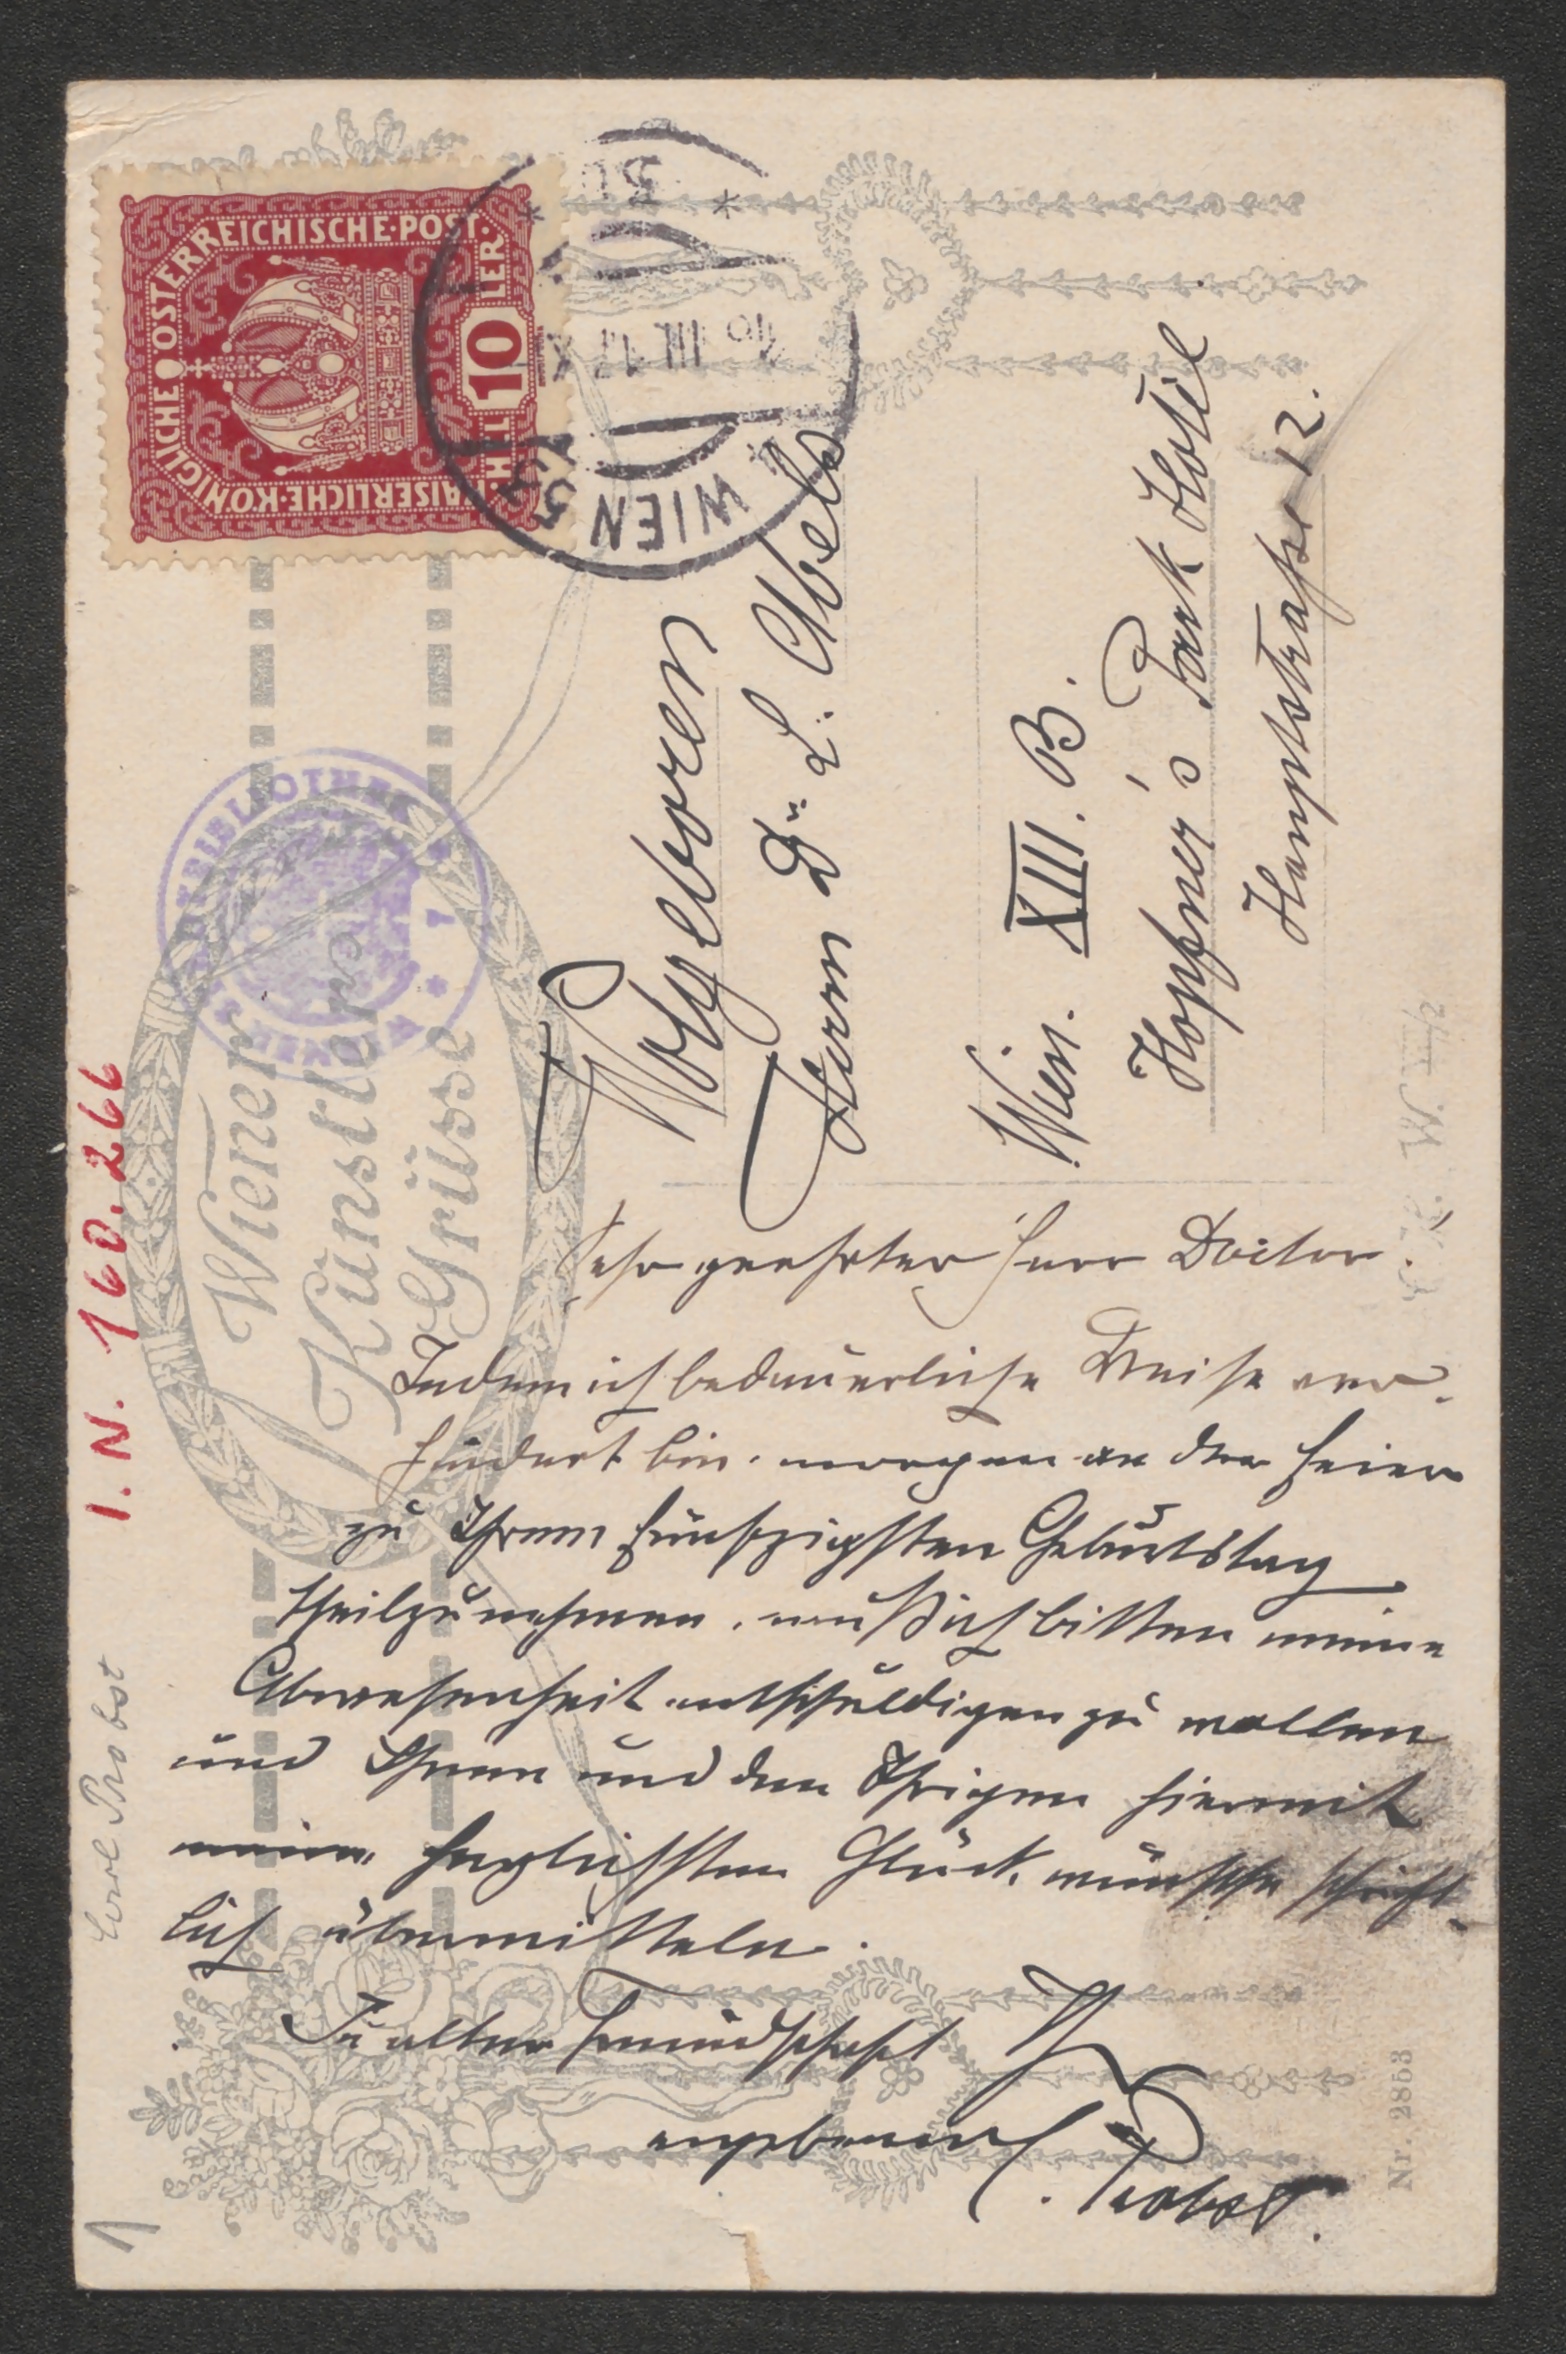 KAISERLICHE·KÖNIGLICHE ÖSTERREICHISCHE·POST·
HELLER 10
WIEN
III 17
I. N. 160.266
Wiener
Künstler
Grüsse
Wohlgeboren
Herrn Dr. L. Abels
Wien. XIII. B.
Hopfner's Park Hotel
Hauptstraße 12.
Sehr geehrter Herr Doctor.
Indem ich bedauerliche Weise ver-
hindert bin, morgen an der Feier
zu Ihrem fünfzigsten Geburtstag
theilzunehmen, muß ich bitten meine
Abwesenheit entschuldigen zu wollen
und Ihnen und den Ihrigen hiermit
meine herzlichsten Glückwünsche schrift-
lich übermitteln.
In alter Freundschaft Ihr
ergebener
C. Probst.
Carl Probst
Nr. 2853
1